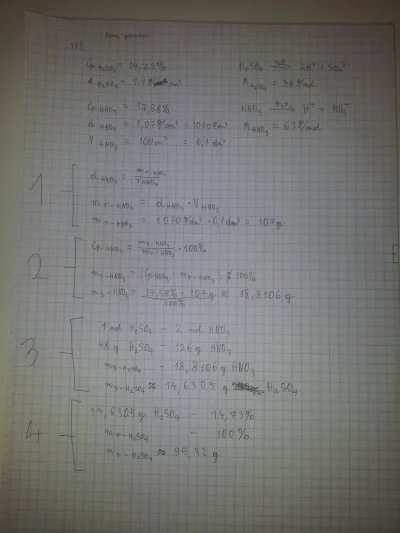 111.
Cp H₂SO₄ = 14,73%
d H₂SO₄ = 1,1 g/cm³
H₂SO₄ →(H₂O) 2H⁺ + SO₄²⁻
M H₂SO₄ = 98 g/mol
Cp HNO₃ = 17,58%
d HNO₃ = 1,07 g/cm³ = 1070 g/dm³
V HNO₃ = 100 cm³ = 0,1 dm³
HNO₃ →(H₂O) H⁺ + NO₃⁻
M HNO₃ = 63 g/mol
1
d HNO₃ = m r-HNO₃ / V HNO₃
m r-HNO₃ = d HNO₃ · V HNO₃
m r-HNO₃ = 1070 g/dm³ · 0,1 dm³ = 107 g
2
Cp HNO₃ = m s-HNO₃ / m r-HNO₃ · 100%
m s-HNO₃ = (Cp HNO₃ · m r-HNO₃) : 100%
m s-HNO₃ = 17,58% · 107g / 100% ≈ 18,8106 g
3
1 mol H₂SO₄ – 2 mol HNO₃
98 g H₂SO₄ – 126 g HNO₃
m s-H₂SO₄ – 18,8106 g HNO₃
m s-H₂SO₄ ≈ 14,6305 g H₂SO₄
4
14,6305 g H₂SO₄ – 14,73%
m r-H₂SO₄ – 100%
m r-H₂SO₄ ≈ 99,32 g